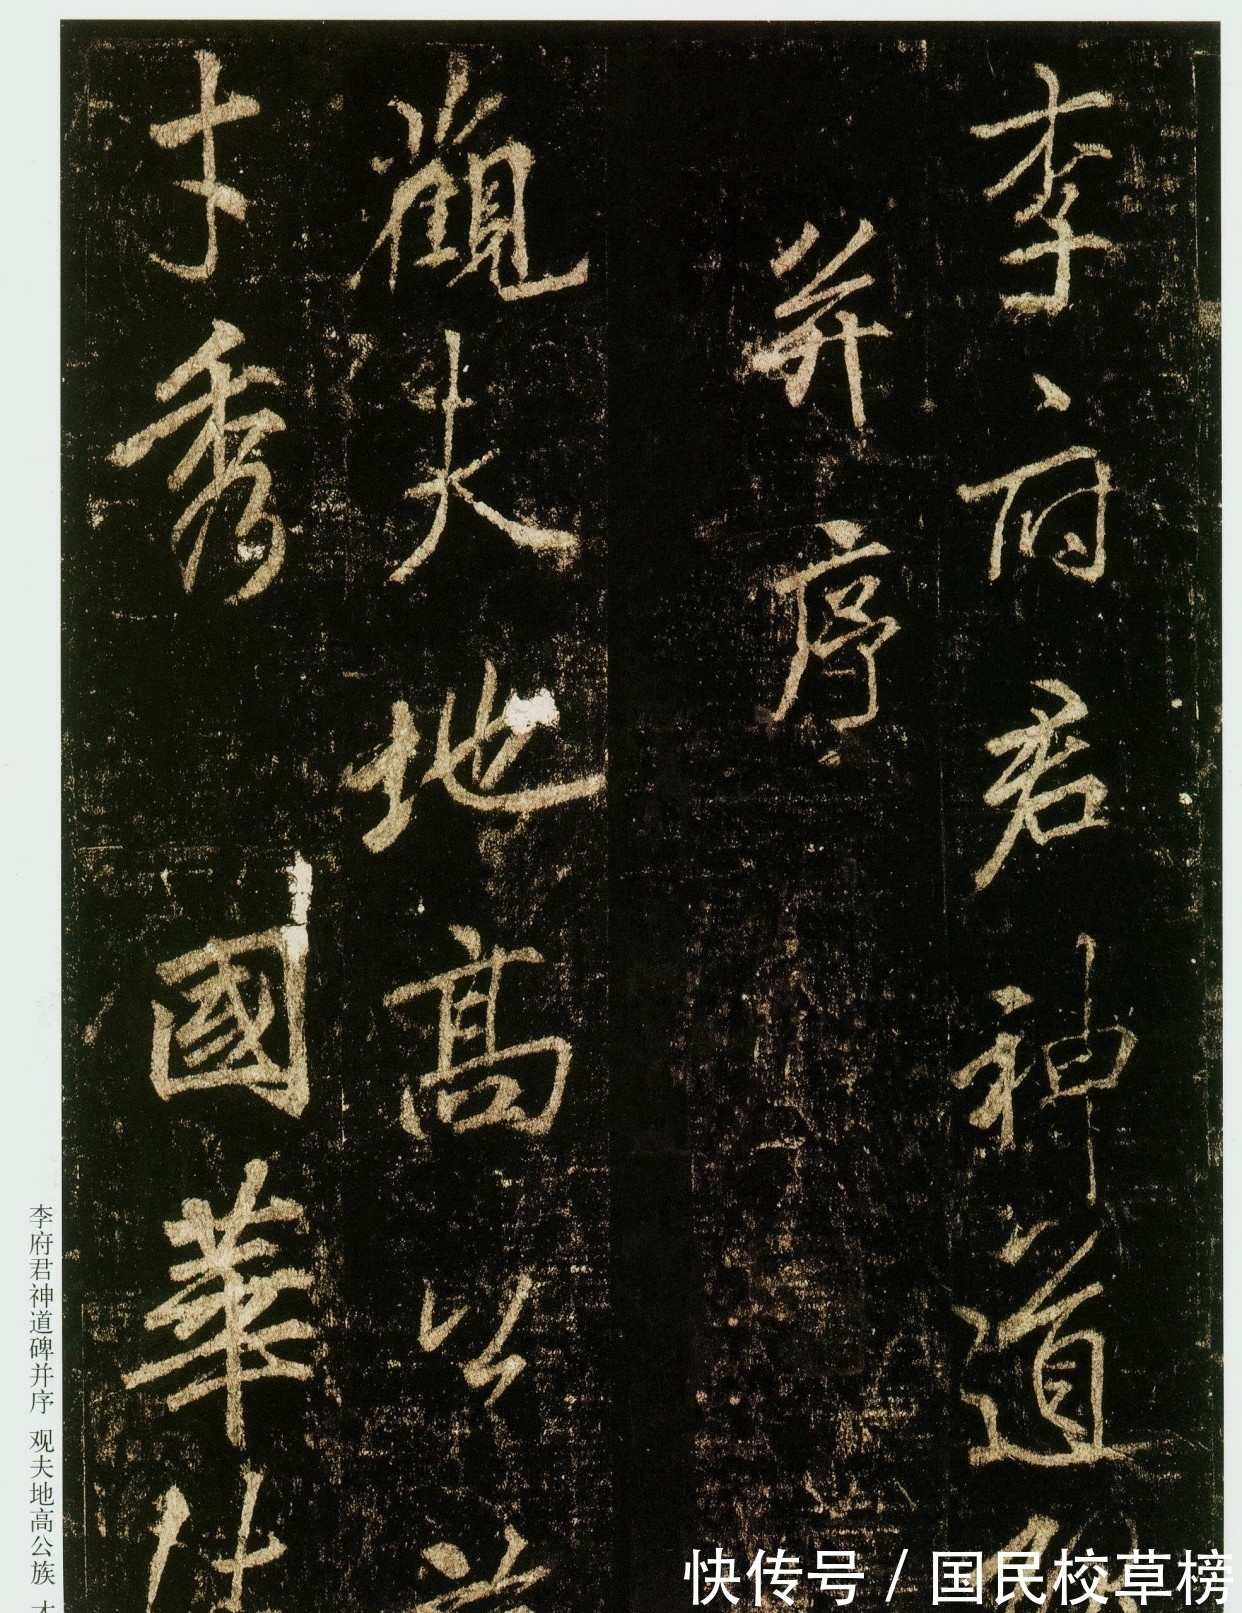 李府君神道碑
并序
觀夫地高公族
才秀國華
李府君神道碑并序 观夫地高公族 才
快传号 / 国民校草榜